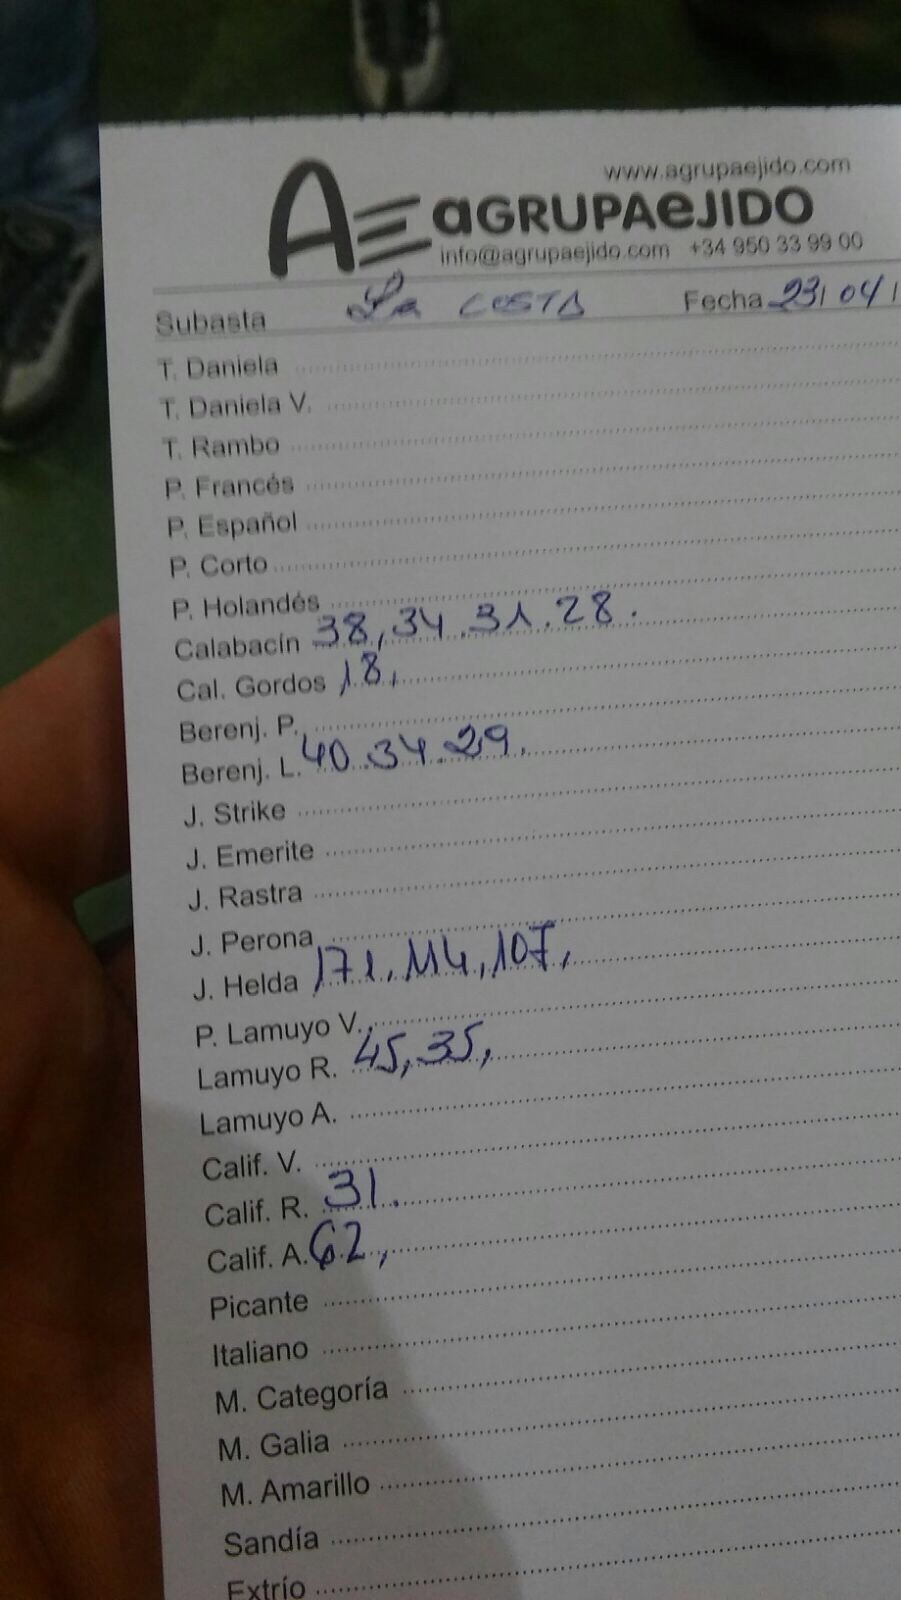 www.agrupaejido.com
AE aGRUPAeJIDO
info@agrupaejido.com +34 950 33 99 00
Subasta La COSTA Fecha 23/04/
T. Daniela
T. Daniela V.
T. Rambo
P. Francés
P. Español
P. Corto
P. Holandés
Calabacín 38, 34. 31. 28.
Cal. Gordos 18,
Berenj. P.
Berenj. L. 40. 34. 29.
J. Strike
J. Emerite
J. Rastra
J. Perona
J. Helda 171, 114, 107,
P. Lamuyo V.
Lamuyo R. 45, 35,
Lamuyo A.
Calif. V.
Calif. R. 31.
Calif. A. 62,
Picante
Italiano
M. Categoría
M. Galia
M. Amarillo
Sandía
Extrío